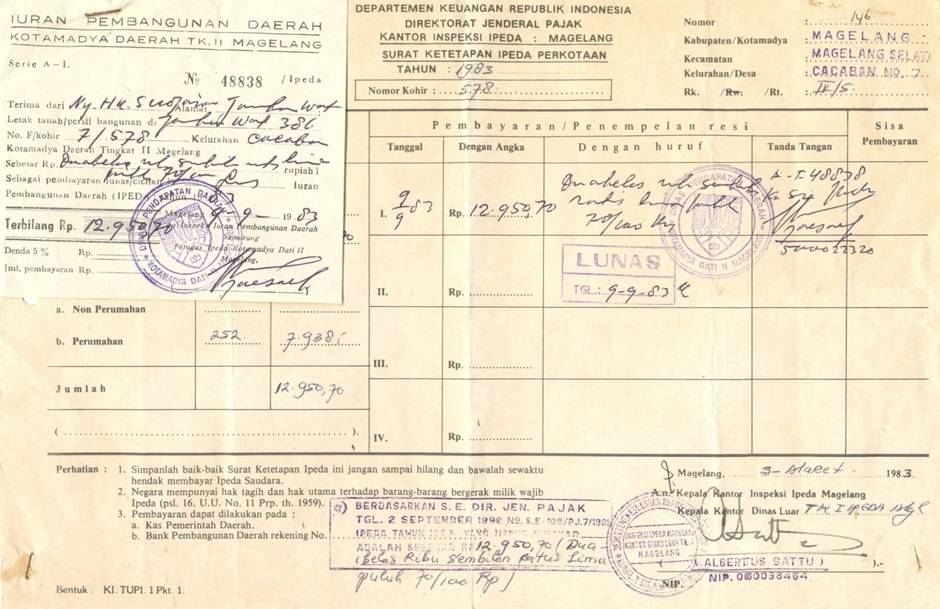 IURAN PEMBANGUNAN DAERAH
KOTAMADYA DAERAH TK.II MAGELANG
Serie A - I.
No 48838 / Ipeda
Terima dari Ny. Hk. Alamat
Letak tanah/persil bangunan di 386
No. F/kohir 7/578 Kelurahan Cacaban
Kotamadya Daerah Tingkat II Magelang
Sebesar Rp. rupiah)
Sebagai pembayaran lunas/cicilan Iuran
Pembangunan Daerah (IPEDA)
Magelang 9-9-1983
Inspeksi Iuran Pembangunan Daerah
Semarang
Petugas Ipeda Kotamadya Dati II
Magelang.
Terbilang Rp. 12.950,70
Denda 5 % Rp.
Jml. pembayaran Rp.
DINAS PENDAPATAN DAERAH
KOTAMADYA DATI II MAGELANG
DEPARTEMEN KEUANGAN REPUBLIK INDONESIA
DIREKTORAT JENDERAL PAJAK
KANTOR INSPEKSI IPEDA : MAGELANG
SURAT KETETAPAN IPEDA PERKOTAAN
TAHUN : 1983
Nomor Kohir : 578
Nomor : 146
Kabupaten/Kotamadya : MAGELANG
Kecamatan MAGELANG SELATA
Kelurahan/Desa : CACABAN NO. 7
Rk. / Rw. / Rt. : IV/5
Pembayaran/Penempelan resi
Sisa Pembayaran
Tanggal Dengan Angka Dengan huruf Tanda Tangan
I. 9/9 83 Rp. 12.950,70
70/100 A-I 48838
LUNAS
TGL.: 9-9-83
II. Rp.
III. Rp.
IV. Rp.
a. Non Perumahan
b. Perumahan 252 7.938,-
Jumlah 12.950,70
( ).
Perhatian : 1. Simpanlah baik-baik Surat Ketetapan Ipeda ini jangan sampai hilang dan bawalah sewaktu
hendak membayar Ipeda Saudara.
2. Negara mempunyai hak tagih dan hak utama terhadap barang-barang bergerak milik wajib
Ipeda (psl. 16. U.U. No. 11 Prp. th. 1959).
3. Pembayaran dapat dilakukan pada :
a. Kas Pemerintah Daerah.
b. Bank Pembangunan Daerah rekening No.
*) BERDASARKAN S.E. DIR. JEN. PAJAK
TGL. 2 SEPTEMBER
IPEDA TAHUN
ADALAH SEBESAR Rp 12.950,70 / Dua
belas Ribu Sembilan Ratus Lima
puluh 70/100 Rp)
Magelang, 3-Maret 1983.
A.n. Kepala Kantor Inspeksi Ipeda Magelang
Kepala Kantor Dinas Luar TK I IPEDA Mgl
MAGELANG
( ALBERTUS SATTU )
NIP. 060038464
Bentuk : KI. TUPI. 1 Pkt. 1.